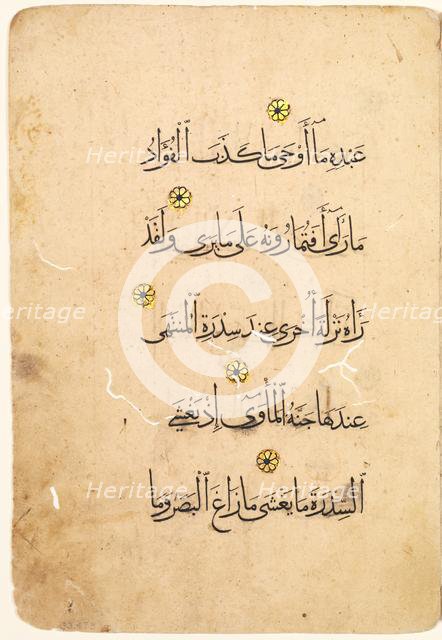 عَبْدِهِ مَآ أَوْحَىٰ مَا كَذَبَ ٱلْفُؤَادُ
مَا رَأَىٰٓ أَفَتُمَارُونَهُ عَلَىٰ مَا يَرَىٰ وَلَقَدْ
رَآهُ نَزْلَةً أُخْرَىٰ عِندَ سِدْرَةِ ٱلْمُنتَهَىٰ
عِندَهَا جَنَّةُ ٱلْمَأْوَىٰٓ إِذْ يَغْشَى
ٱلسِّدْرَةَ مَا يَغْشَىٰ مَا زَاغَ ٱلْبَصَرُ وَمَا
Heritage
Heritage
Heritage
Heritage
Heritage
Heritage
©